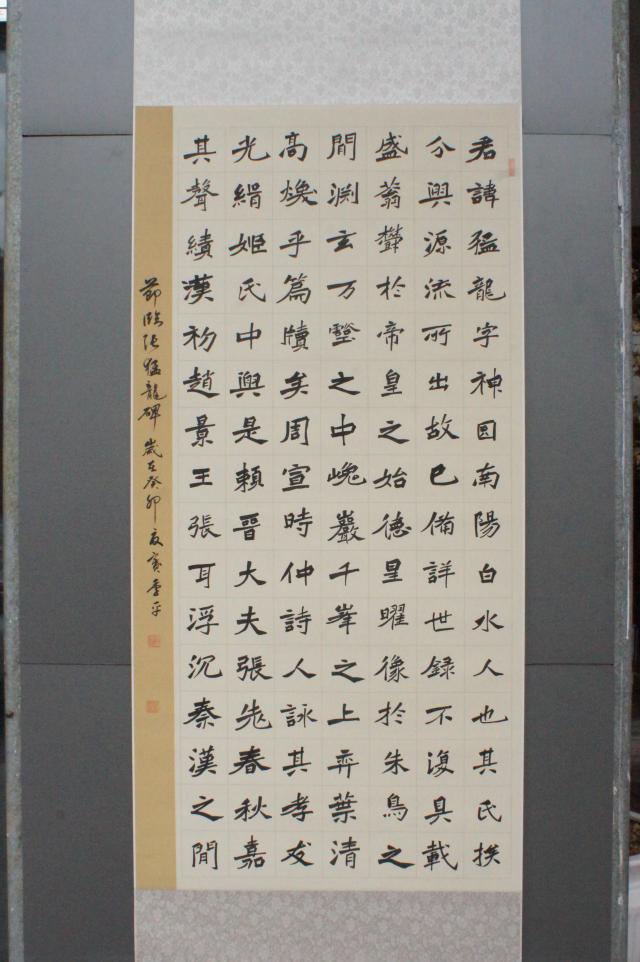 君諱猛龍字神囙南陽白水人也其氏族
分興源流所出故已備詳世録不復具載
盛蓊欝於帝皇之始德星曜像於朱鳥之
間淵玄万壑之中巍巖千峯之上弈葉清
高煥乎篇牘矣周宣時仲詩人詠其孝友
光緝姬氏中興是賴晋大夫張老春秋嘉
其聲績漢初趙景王張耳浮沉秦漢之間
節臨張猛龍碑 歲在癸卯夏 李平